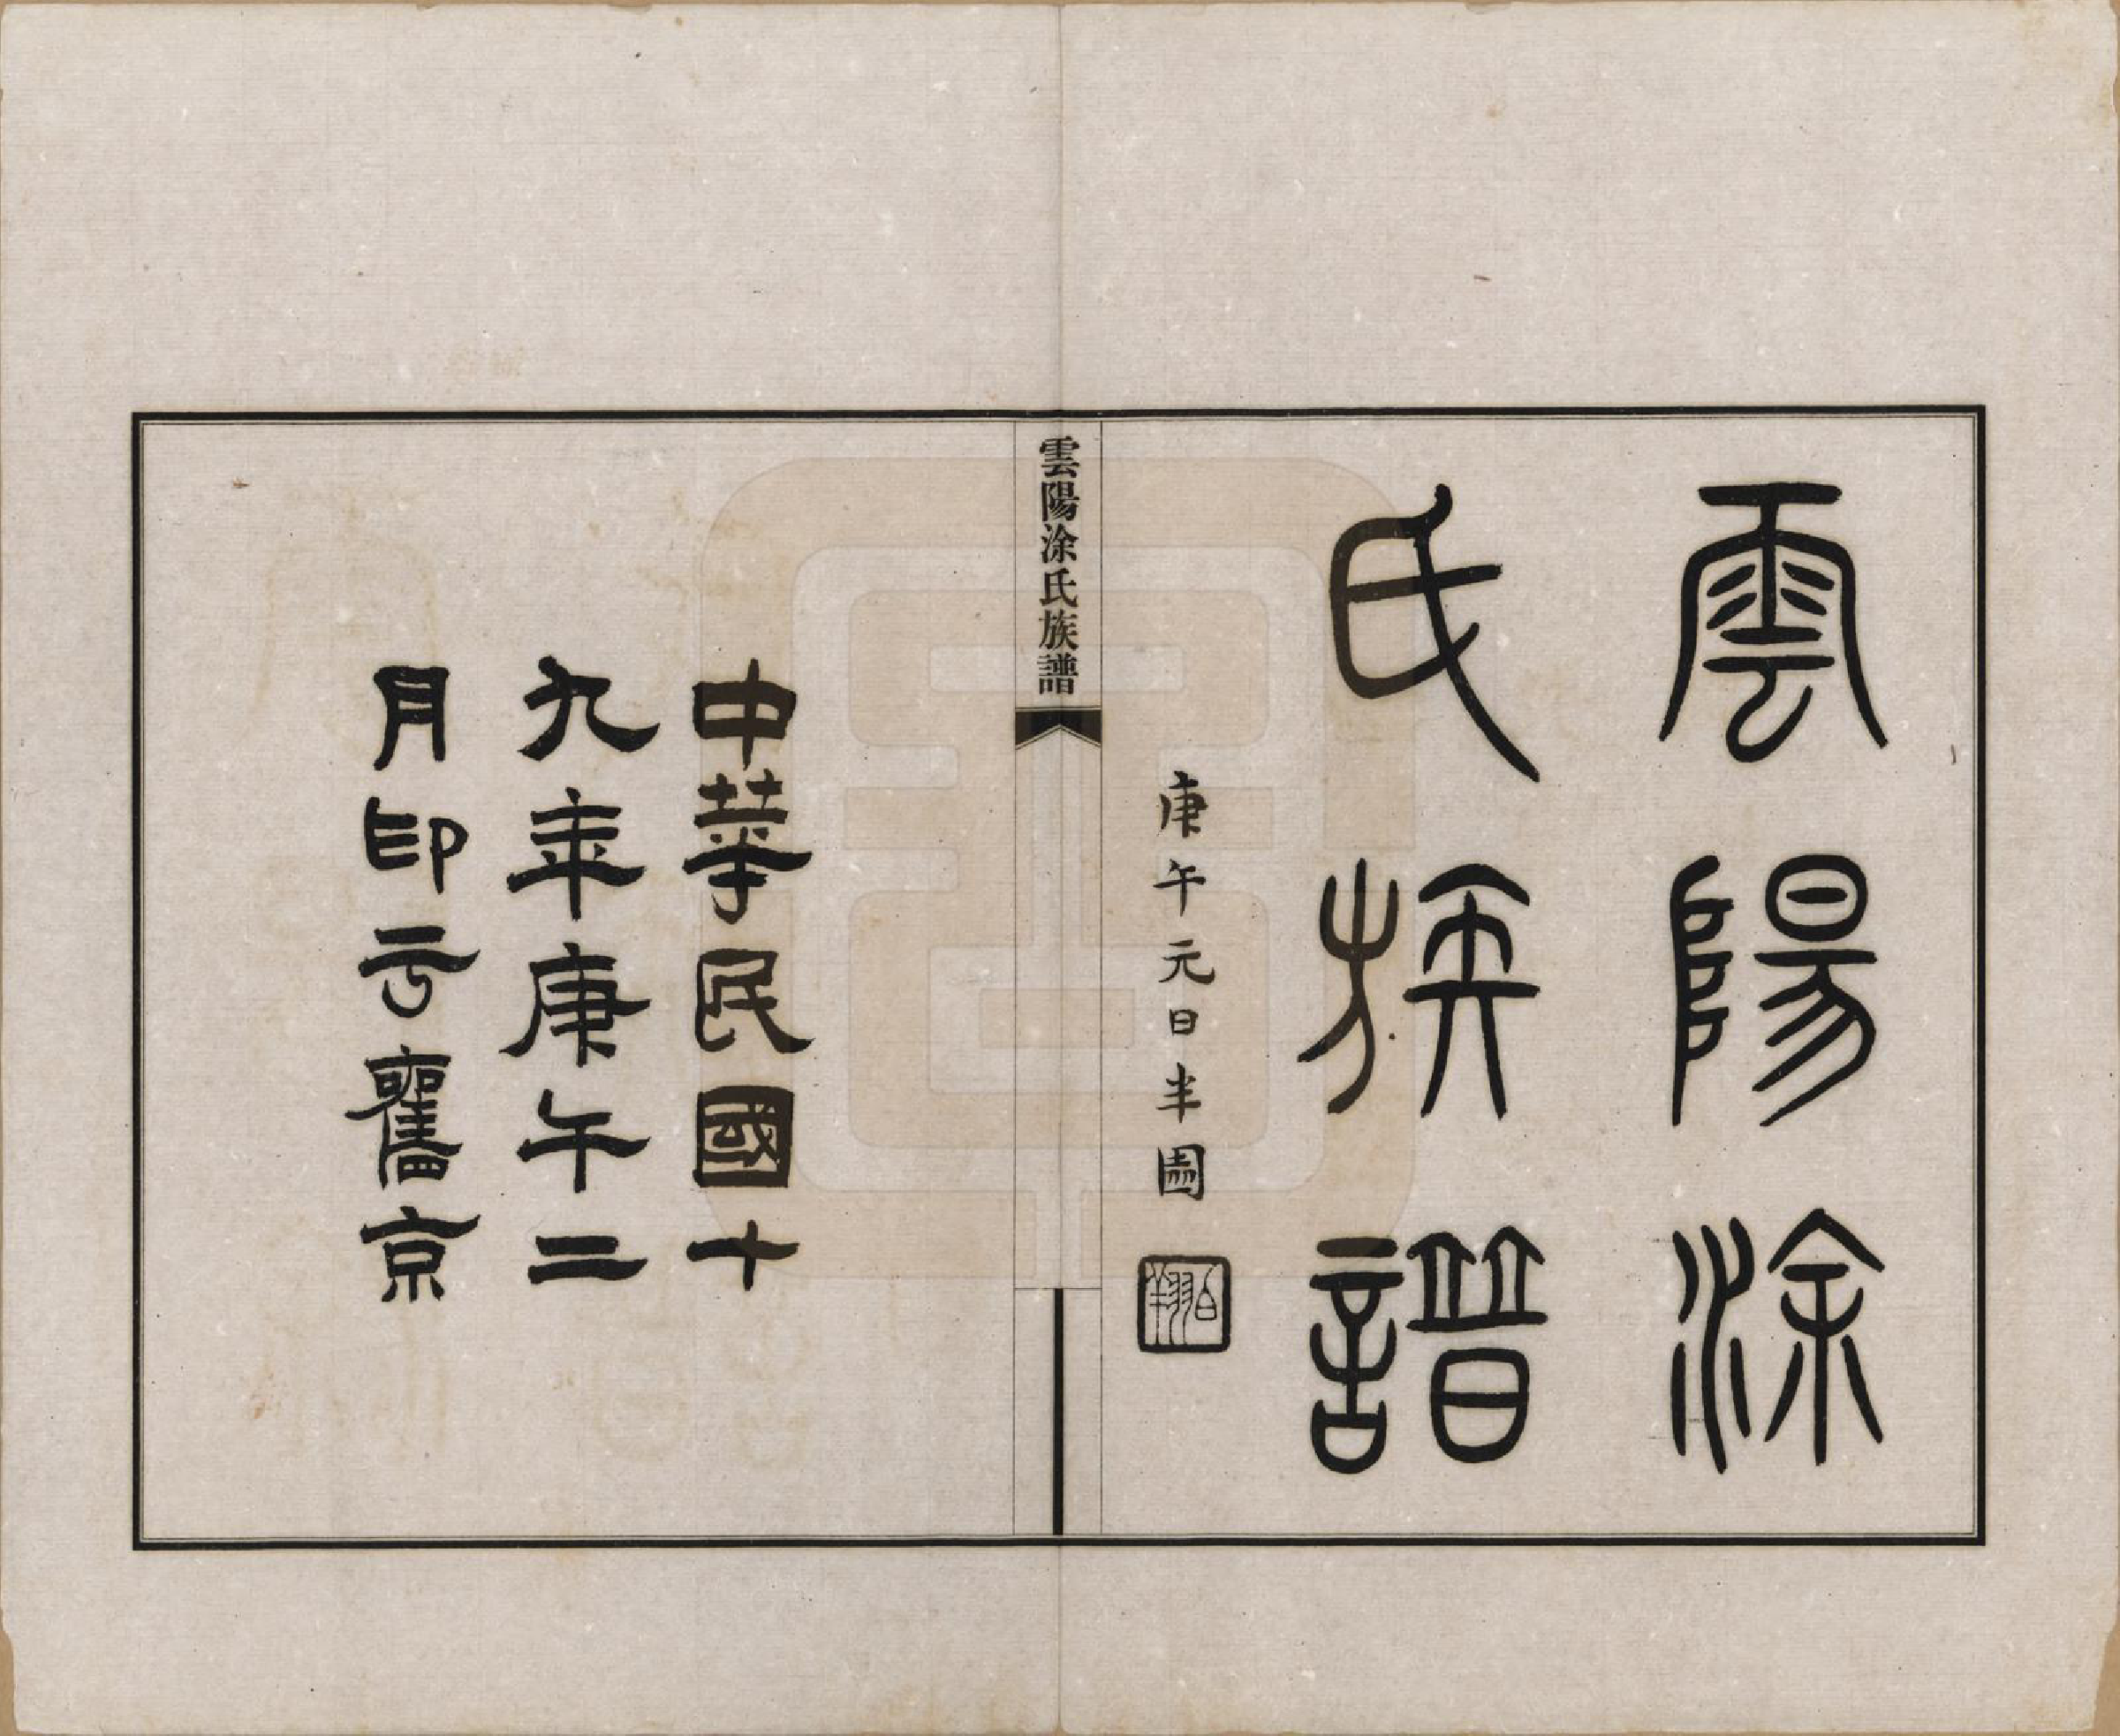 雲陽涂
氏族譜
庚午元日半園
伯翔
雲陽涂氏族譜
中華民國十
九年庚午二
月印亏舊京